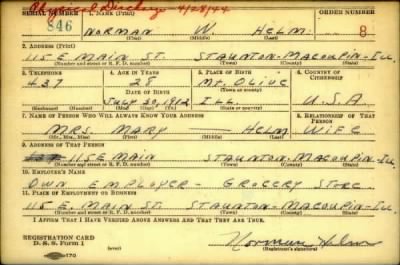 Physical Discharge - 4/28/44
SERIAL NUMBER 1. NAME (Print) ORDER NUMBER
846 NORMAN W. HELM 8
(First) (Middle) (Last)
2. ADDRESS (Print)
115 E MAIN ST. STAUNTON - MACOUPIN - ILL.
(Number and street or R. F. D. number) (Town) (County) (State)
3. TELEPHONE 4. AGE IN YEARS 5. PLACE OF BIRTH 6. COUNTRY OF CITIZENSHIP
437 28 MT. OLIVE
DATE OF BIRTH (Town or county)
JULY 30, 1912 ILL. U.S.A
(Exchange) (Number) (Mo.) (Day) (Yr.) (State or country)
7. NAME OF PERSON WHO WILL ALWAYS KNOW YOUR ADDRESS 8. RELATIONSHIP OF THAT PERSON
MRS. MARY — HELM WIFE
(Mr., Mrs., Miss) (First) (Middle) (Last)
9. ADDRESS OF THAT PERSON
115 E MAIN STAUNTON - MACOUPIN - ILL
(Number and street or R. F. D. number) (Town) (County) (State)
10. EMPLOYER'S NAME
OWN EMPLOYER - GROCERY STORE
11. PLACE OF EMPLOYMENT OR BUSINESS
115 E. MAIN ST. STAUNTON - MACOUPIN - ILL.
(Number and street or R. F. D. number) (Town) (County) (State)
I AFFIRM THAT I HAVE VERIFIED ABOVE ANSWERS AND THAT THEY ARE TRUE.
REGISTRATION CARD
D. S. S. FORM 1 Norman Helm
(Registrant's signature)